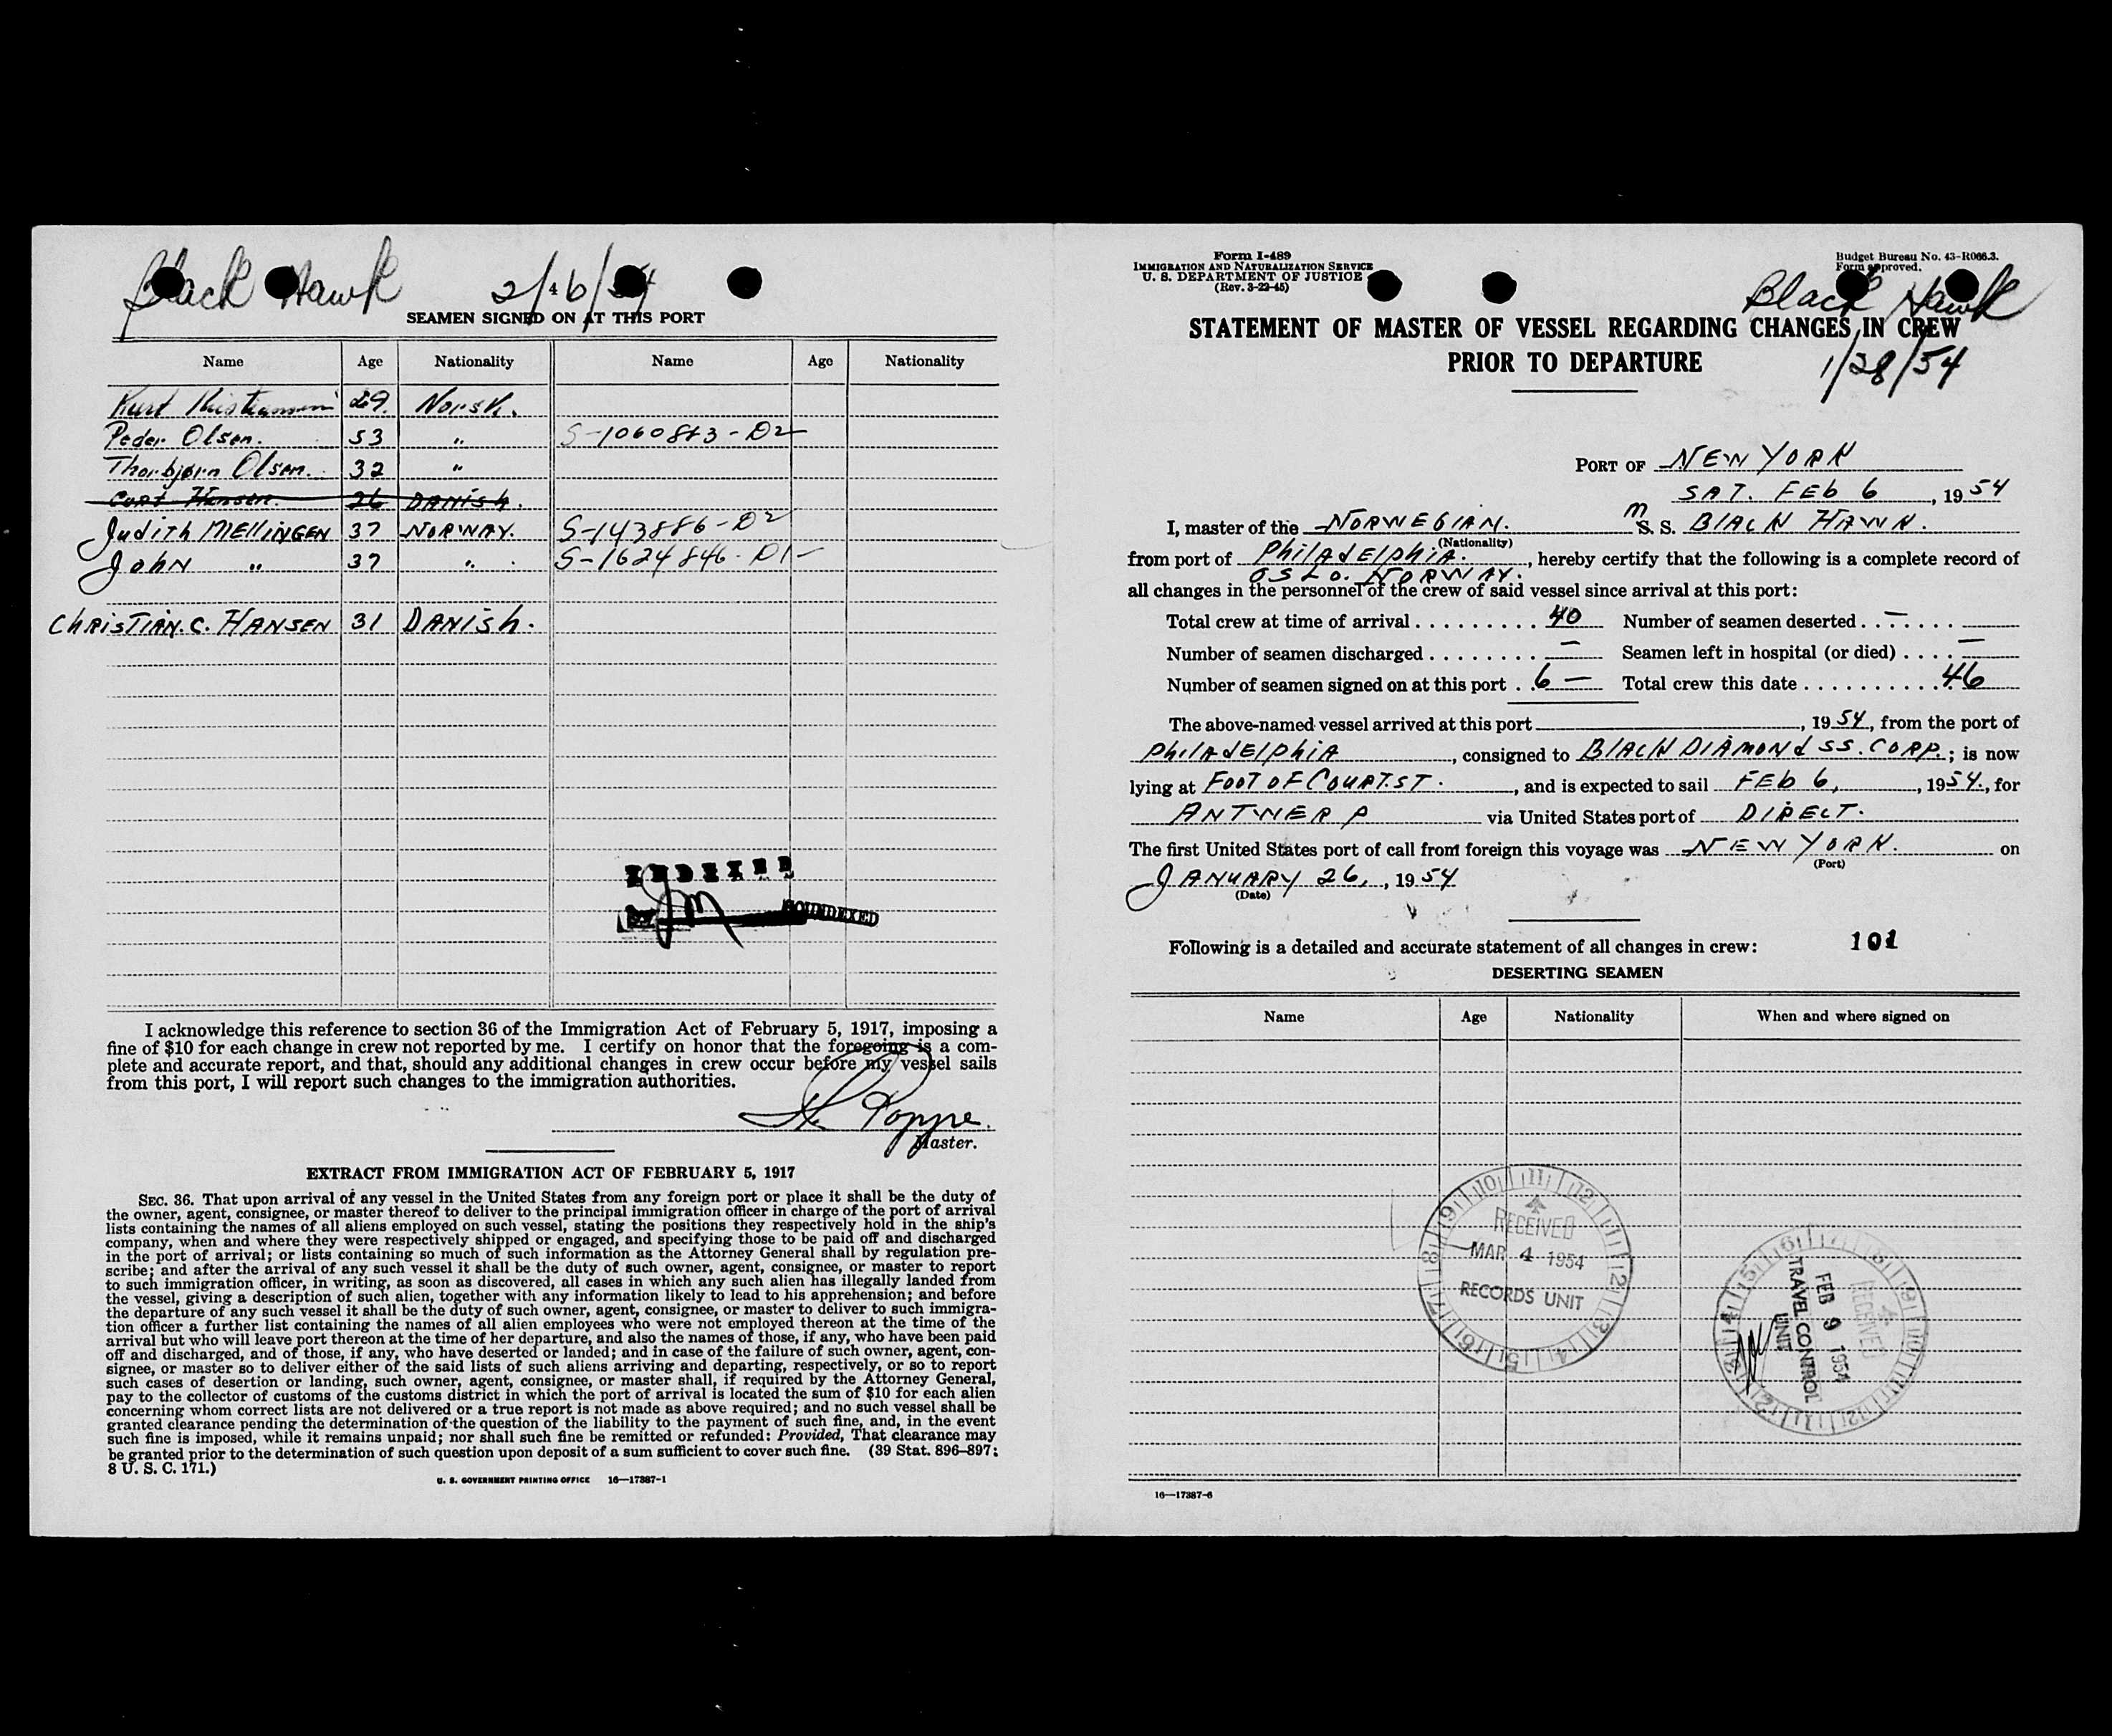 Black Hawk 2/6/54
SEAMEN SIGNED ON AT THIS PORT
Name Age Nationality Name Age Nationality
Kurt Kristiansen 29. Norsk.
Peder Olsen. 53 " S-1060883-D2
Thorbjørn Olsen. 32 "
Curt Hansen. 26 DANISH.
Judith MELLINGEN 37 NORWAY. S-143886-D2
JOHN " 37 " S-1624846-D1-
CHRISTIAN. C. HANSEN 31 DANISH.
INDEXED
I acknowledge this reference to section 36 of the Immigration Act of February 5, 1917, imposing a
fine of $10 for each change in crew not reported by me. I certify on honor that the foregoing is a com-
plete and accurate report, and that, should any additional changes in crew occur before my vessel sails
from this port, I will report such changes to the immigration authorities.
Poppe.
Master.
EXTRACT FROM IMMIGRATION ACT OF FEBRUARY 5, 1917
SEC. 36. That upon arrival of any vessel in the United States from any foreign port or place it shall be the duty of
the owner, agent, consignee, or master thereof to deliver to the principal immigration officer in charge of the port of arrival
lists containing the names of all aliens employed on such vessel, stating the positions they respectively hold in the ship's
company, when and where they were respectively shipped or engaged, and specifying those to be paid off and discharged
in the port of arrival; or lists containing so much of such information as the Attorney General shall by regulation pre-
scribe; and after the arrival of any such vessel it shall be the duty of such owner, agent, consignee, or master to report
to such immigration officer, in writing, as soon as discovered, all cases in which any such alien has illegally landed from
the vessel, giving a description of such alien, together with any information likely to lead to his apprehension; and before
the departure of any such vessel it shall be the duty of such owner, agent, consignee, or master to deliver to such immigra-
tion officer a further list containing the names of all alien employees who were not employed thereon at the time of the
arrival but who will leave port thereon at the time of her departure, and also the names of those, if any, who have been paid
off and discharged, and of those, if any, who have deserted or landed; and in case of the failure of such owner, agent, con-
signee, or master so to deliver either of the said lists of such aliens arriving and departing, respectively, or so to report
such cases of desertion or landing, such owner, agent, consignee, or master shall, if required by the Attorney General,
pay to the collector of customs of the customs district in which the port of arrival is located the sum of $10 for each alien
concerning whom correct lists are not delivered or a true report is not made as above required; and no such vessel shall be
granted clearance pending the determination of the question of the liability to the payment of such fine, and, in the event
such fine is imposed, while it remains unpaid; nor shall such fine be remitted or refunded: Provided, That clearance may
be granted prior to the determination of such question upon deposit of a sum sufficient to cover such fine. (39 Stat. 896–897;
8 U. S. C. 171.)
U. S. GOVERNMENT PRINTING OFFICE 16—17387-1
Form I-489
IMMIGRATION AND NATURALIZATION SERVICE
U. S. DEPARTMENT OF JUSTICE
(Rev. 3-22-45)
Budget Bureau No. 43-R066.3.
Form approved.
Black Hawk
STATEMENT OF MASTER OF VESSEL REGARDING CHANGES IN CREW
PRIOR TO DEPARTURE
1/28/54
PORT OF NEW YORK
SAT. FEB 6, 1954
I, master of the NORWEGIAN. M S. S. BLACK HAWK.
(Nationality)
from port of PHILADELPHIA., hereby certify that the following is a complete record of
OSLO. NORWAY.
all changes in the personnel of the crew of said vessel since arrival at this port:
Total crew at time of arrival . . . . . . . . . 40 Number of seamen deserted . . . . . . . —
Number of seamen discharged . . . . . . . . — Seamen left in hospital (or died) . . . . —
Number of seamen signed on at this port . . 6 — Total crew this date . . . . . . . . . . 46
The above-named vessel arrived at this port , 1954, from the port of
PHILADELPHIA, consigned to BLACK DIAMOND SS. CORP.; is now
lying at FOOT OF COURT.ST., and is expected to sail FEB 6, , 1954., for
ANTWERP via United States port of DIRECT.
The first United States port of call from foreign this voyage was NEW YORK. on
(Port)
JANUARY 26, , 1954
(Date)
Following is a detailed and accurate statement of all changes in crew: 101
DESERTING SEAMEN
Name Age Nationality When and where signed on
RECEIVED
MAR 4 1954
RECORDS UNIT
RECEIVED
FEB 9 1954
TRAVEL CONTROL
UNIT
16—17387-6